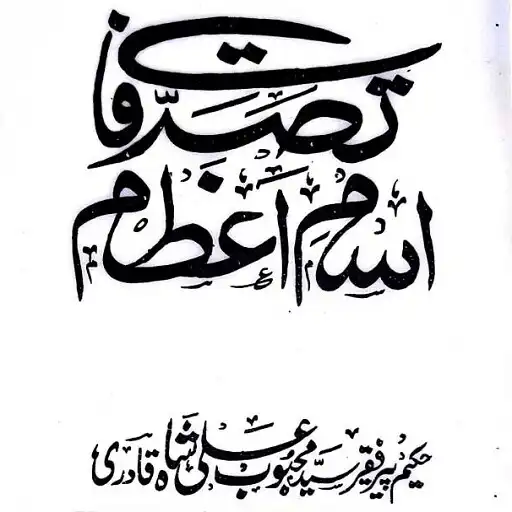 تصدّقات
اسمِ اَعظم
حکیم پیر فقیر سیّد محبوب علی شاہ قادری